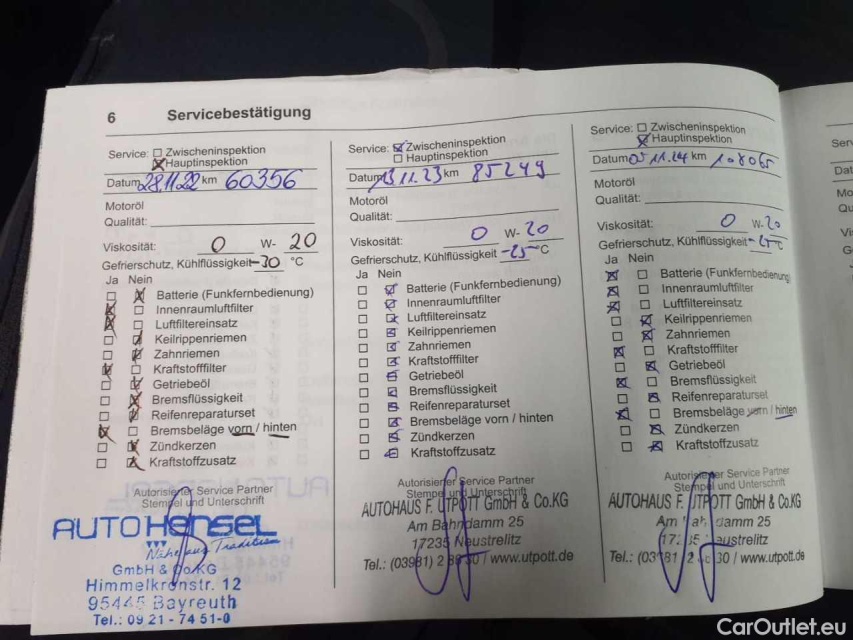 6 Servicebestätigung
Service: Zwischeninspektion
Hauptinspektion
Datum 28.11.22 km 60356
Motoröl
Qualität:
Viskosität: 0 W- 20
Gefrierschutz, Kühlflüssigkeit -30 °C
Ja Nein
Batterie (Funkfernbedienung)
Innenraumluftfilter
Luftfiltereinsatz
Keilrippenriemen
Zahnriemen
Kraftstofffilter
Getriebeöl
Bremsflüssigkeit
Reifenreparaturset
Bremsbeläge vorn / hinten
Zündkerzen
Kraftstoffzusatz
Autorisierter Service Partner
Stempel und Unterschrift
AUTO Hensel
Nähe aus Tradition
GmbH & Co.KG
Himmelkronstr. 12
95445 Bayreuth
Tel.: 09 21 - 74 51-0
Service: Zwischeninspektion
Hauptinspektion
Datum 13.11.23 km 85249
Motoröl
Qualität:
Viskosität: 0 W- 20
Gefrierschutz, Kühlflüssigkeit -25 °C
Ja Nein
Batterie (Funkfernbedienung)
Innenraumluftfilter
Luftfiltereinsatz
Keilrippenriemen
Zahnriemen
Kraftstofffilter
Getriebeöl
Bremsflüssigkeit
Reifenreparaturset
Bremsbeläge vorn / hinten
Zündkerzen
Kraftstoffzusatz
Autorisierter Service Partner
Stempel und Unterschrift
AUTOHAUS F. UTPOTT GmbH & Co.KG
Am Bahndamm 25
17235 Neustrelitz
Tel.: (03981) 2 30 / www.utpott.de
Service: Zwischeninspektion
Hauptinspektion
Datum 05.11.24 km 108065
Motoröl
Qualität:
Viskosität: 0 W- 20
Gefrierschutz, Kühlflüssigkeit -25 °C
Ja Nein
Batterie (Funkfernbedienung)
Innenraumluftfilter
Luftfiltereinsatz
Keilrippenriemen
Zahnriemen
Kraftstofffilter
Getriebeöl
Bremsflüssigkeit
Reifenreparaturset
Bremsbeläge vorn / hinten
Zündkerzen
Kraftstoffzusatz
Autorisierter Service Partner
Stempel und Unterschrift
AUTOHAUS F. UTPOTT GmbH & Co.KG
Am Bahndamm 25
17235 Neustrelitz
Tel.: (03981) 2 30 / www.utpott.de
CarOutlet.eu